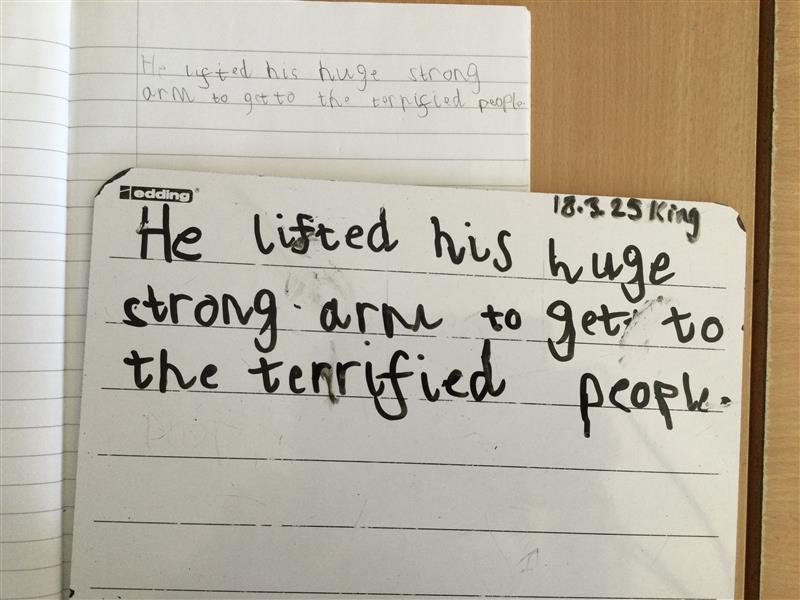 He lifted his huge strong
arm to get to the terrified people.
edding
18.3.25 King
He lifted his huge
strong. arm to get to
the terrified people.